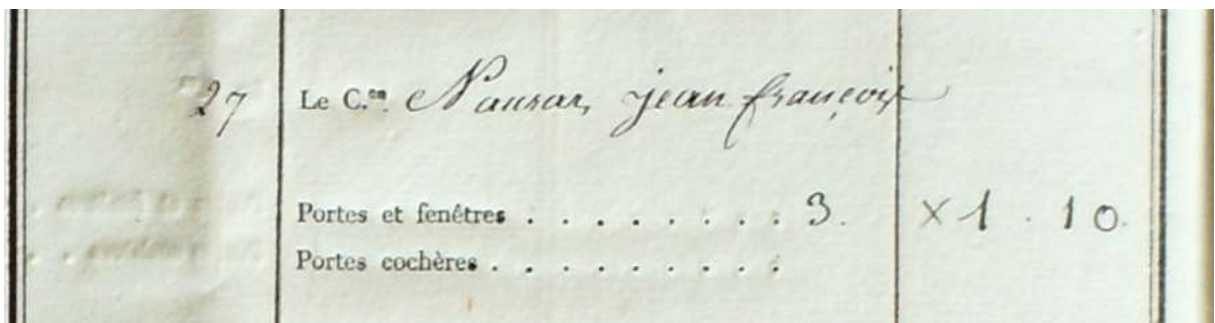 27 Le C.en Nausar, jean françois
Portes et fenêtres . . . . . . . . 3. × 1 . 10.
Portes cochères . . . . . . . . .